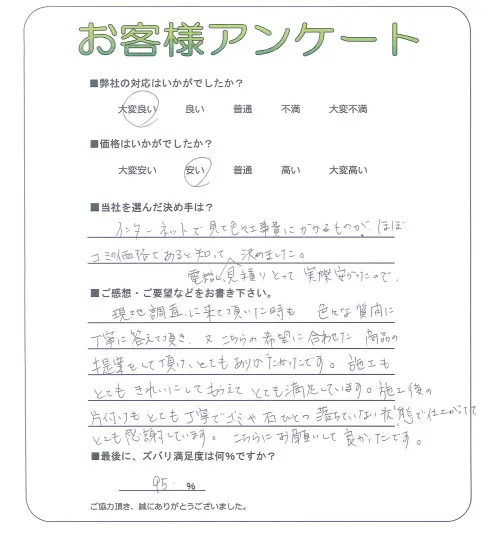 お客様アンケート
■弊社の対応はいかがでしたか？
大変良い 良い 普通 不満 大変不満
■価格はいかがでしたか？
大変安い 安い 普通 高い 大変高い
■当社を選んだ決め手は？
インターネットで見て色々工事費にかかるものが、ほぼ
コミの価格であると知って 決めました。
電話し見積りとって 実際安かったので、
■ご感想・ご要望などをお書き下さい。
現地調査に来て頂いた時も 色々な質問に
丁寧に答えて頂き、又こちらの希望に合わせた 商品の
提案をして頂け、とてもありがたかったです。施工も
とてもきれいにしてもらえて とても満足しています。施工後の
片付けもとても丁寧でゴミや石ひとつ落ちていない状態で仕上がってて
とても感謝しています。こちらにお願いして良かったです。
■最後に、ズバリ満足度は何%ですか？
95 %
ご協力頂き、誠にありがとうございました。